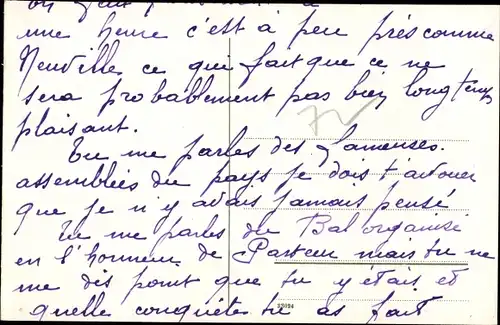 une heure c'est à peu près comme
Neuville ce qui fait que ce ne
sera probablement pas bien longtemps
plaisant.
Tu me parles des fameuses
assemblées du pays je dois t'avouer
que je n'y avais jamais pensé
Tu me parles du Bal organisé
en l'honneur de Pasteur mais tu ne
me dis point que tu y étais et
quelle conquête tu as fait